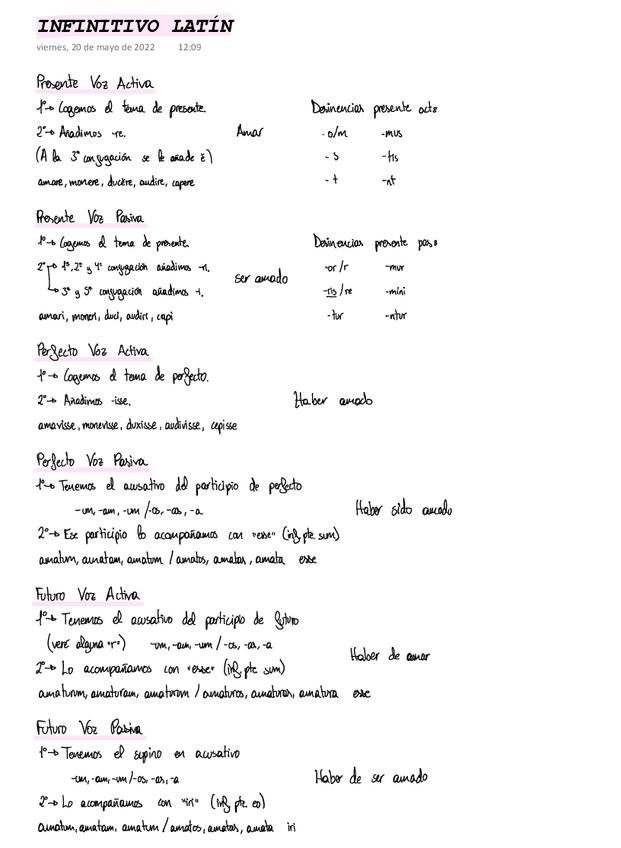 INFINITIVO LATÍN
viernes, 20 de mayo de 2022 12:09
Presente Voz Activa
1º→ Cogemos el tema de presente. Desinencias presente act:
2º→ Añadimos -re. Amar -o/m -mus
(A la 3º conjugación se le añade ĕ) -s -tis
amare, monere, ducĕre, audire, capere -t -nt
Presente Voz Pasiva
1º→ Cogemos el tema de presente. Desinencias presente pas:
2º→ 1º, 2º y 4º conjugación añadimos -ri. ser amado -or/r -mur
→ 3º y 5º conjugación añadimos -i. -ris/re -mini
amari, moneri, duci, audiri, capi -tur -ntur
Perfecto Voz Activa
1º→ Cogemos el tema de perfecto.
2º→ Añadimos -isse. Haber amado
amavisse, monevisse, duxisse, audivisse, cepisse
Perfecto Voz Pasiva
1º→ Tenemos el acusativo del participio de perfecto
-um, -am, -um /-os, -as, -a Haber sido amado
2º→ Ese participio lo acompañamos con "esse" (inf. pte. sum)
amatum, amatam, amatum / amatos, amatas, amata esse
Futuro Voz Activa
1º→ Tenemos el acusativo del participio de futuro
(veré alguna "r") -um, -am, -um / -os, -as, -a Haber de amar
2º→ Lo acompañamos con "esse" (inf. pte sum)
amaturum, amaturam, amaturum / amaturos, amaturas, amatura esse
Futuro Voz Pasiva
1º→ Tenemos el supino en acusativo
-um, -am, -um /-os, -as, -a Haber de ser amado
2º→ Lo acompañamos con "iri" (inf. pte. eo)
amatum, amatam, amatum / amatos, amatas, amata iri